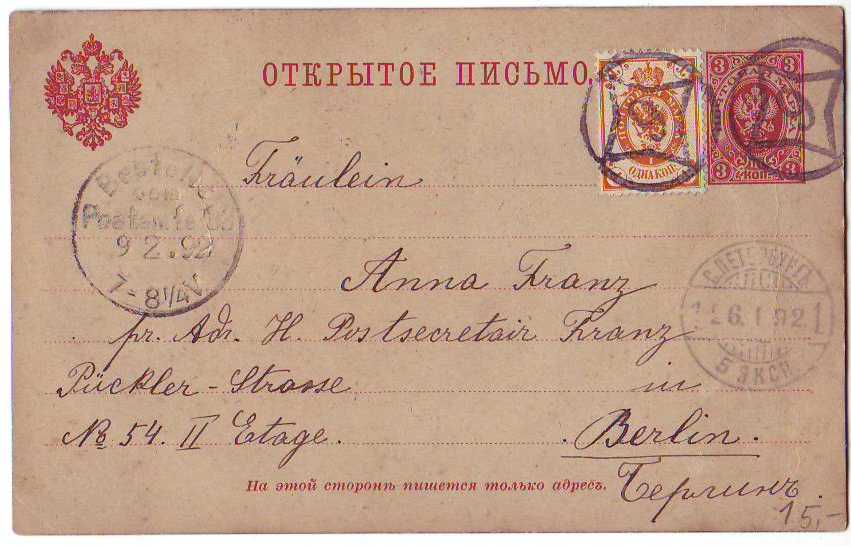 ОТКРЫТОЕ ПИСЬМО.
3 3
ОДНА КОП.
3 КОП. 3
Fräulein
Bestellt
vom
Postamte
9 2.92
7-8 1/4 V
Anna Franz
С.ПЕТЕРБУРГЪ
26.I.92.
5 ЭКСП.
pr. Adr. H. Postsecretair Franz
Pückler-Strasse in
№ 54. II Etage. Berlin.
На этой сторонѣ пишется только адресъ.
Берлинъ.
15,-